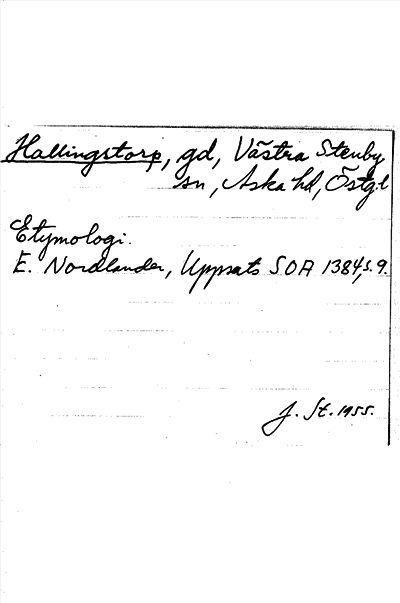 Hallingstorp, gd, Västra Stenby
sn, Aska hd, Östgl
Etymologi.
E. Nordlander, Uppsats SOA 1384, s. 9.
J. St. 1955.